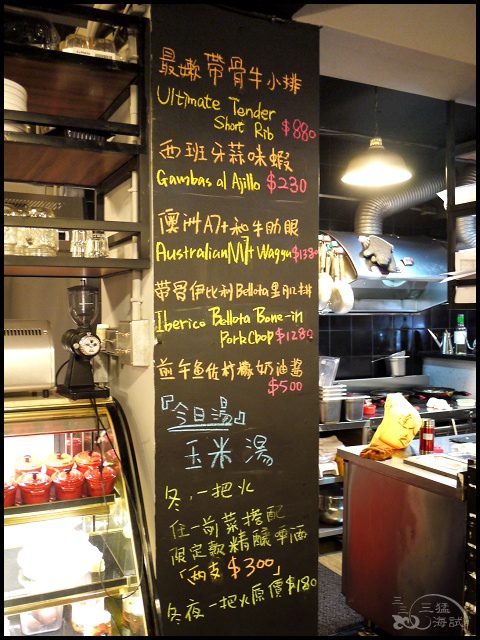 最嫰帶骨牛小排
Ultimate Tender
Short Rib $880
西班牙蒜味蝦
Gambas al Ajillo $230
澳洲A7+和牛肋眼
Australian M7+ Waggu $1380
帶骨伊比利Bellota黑肌排
Iberico Bellota Bone-in
Pork Chop $1280
煎午魚佐柠檬奶油酱
$500
『今日湯』
玉米湯
冬,一把火
任一前菜搭配
限定款精釀啤酒
「兩支$300」
冬夜一把火原價$180
三猛
海試